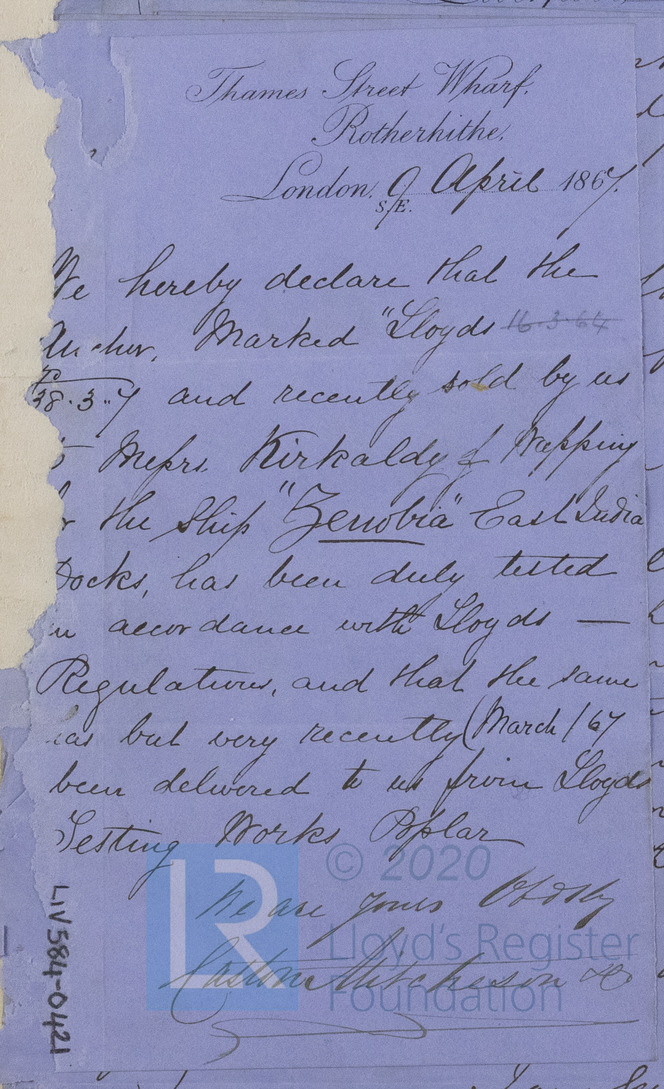 Thames Street Wharf,
Rotherhithe,
London, 9 April 1867.
S.E.
We hereby declare that the
Anchor, Marked "Lloyds 16.3.64
28.3.. 7 and recently sold by us
to Messrs. Kirkaldy of Wapping
for the Ship "Zenobia" East India
Docks, has been duly tested
in accordance with Lloyds —
Regulations, and that the same
has but very recently (March / 67
been delivered to us from Lloyds
Testing Works Poplar
We are Yours Obdtly
Mitcheson & Co
LIV584-0421
© 2020
LR
Lloyd's Register
Foundation